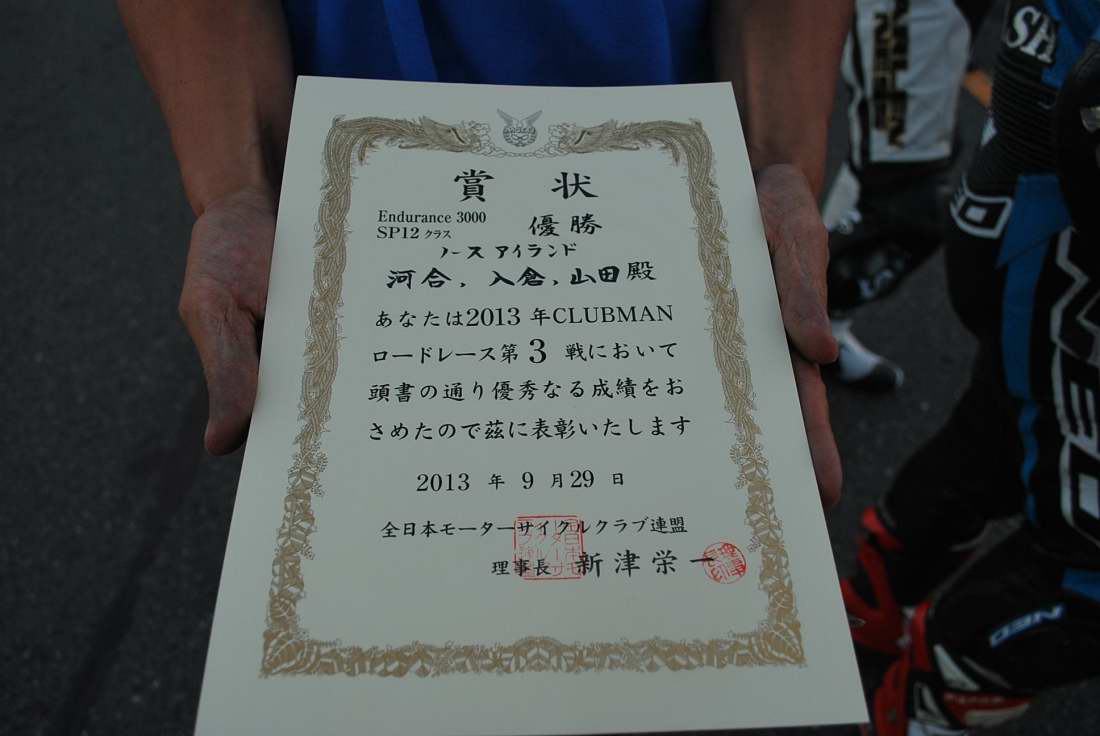 賞状
Endurance 3000
SP12 クラス
優勝
ノースアイランド
河合, 入倉, 山田 殿
あなたは2013年CLUBMAN
ロードレース第3戦において
頭書の通り優秀なる成績をお
さめたので茲に表彰いたします
2013年9月29日
全日本モーターサイクルクラブ連盟
理事長 新津栄一
SH